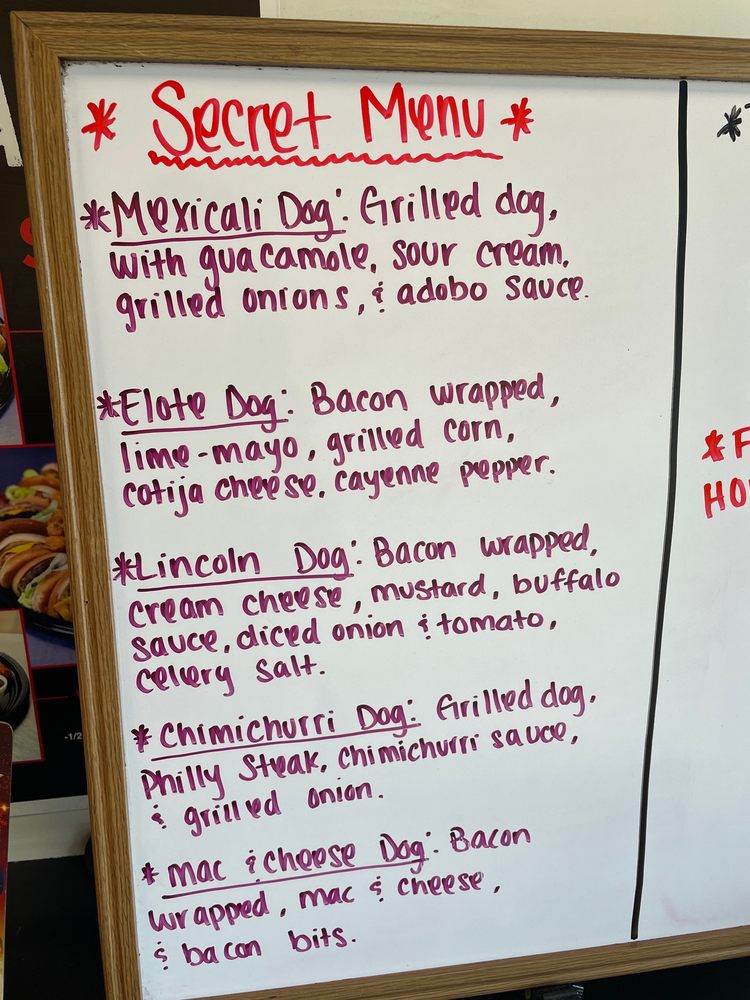 * Secret Menu *
*Mexicali Dog: Grilled dog,
with guacamole, sour cream,
grilled onions, & adobo sauce.
*Elote Dog: Bacon wrapped,
lime-mayo, grilled corn,
cotija cheese, cayenne pepper.
*Lincoln Dog: Bacon wrapped,
cream cheese, mustard, buffalo
sauce, diced onion & tomato,
celery salt.
*Chimichurri Dog: Grilled dog,
Philly Steak, Chimichurri sauce,
& grilled onion.
*mac & cheese Dog: Bacon
wrapped, mac & cheese,
& bacon bits.
-1/2